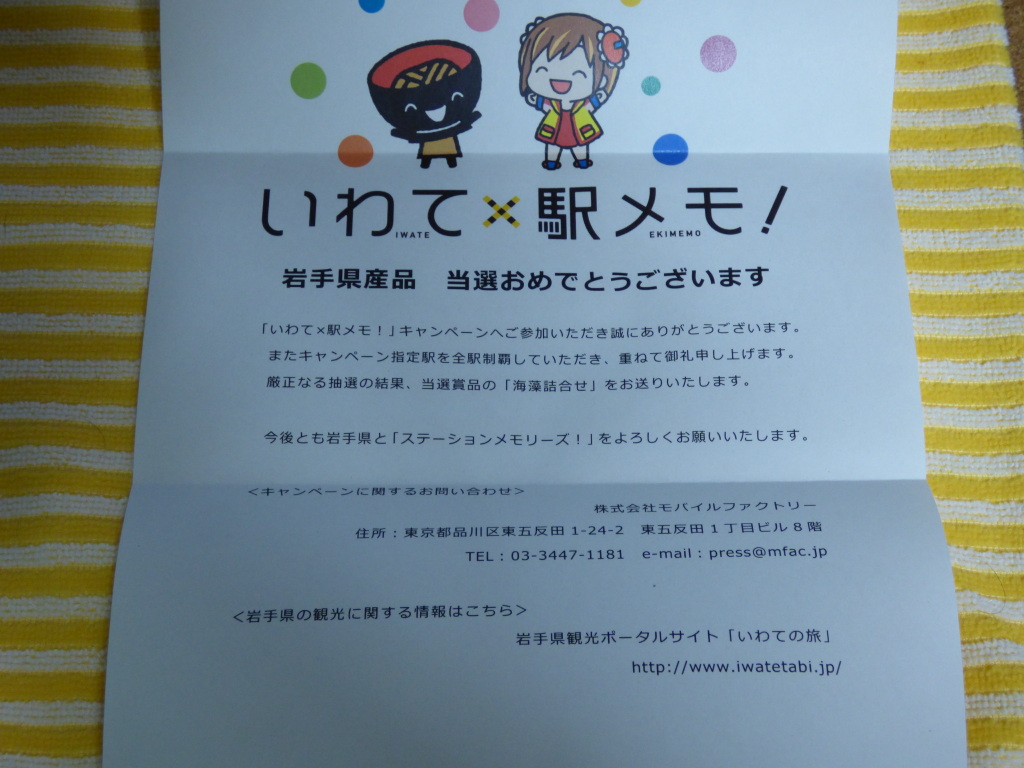 いわて×駅メモ!
IWATE EKIMEMO
岩手県産品 当選おめでとうございます
「いわて×駅メモ!」キャンペーンへご参加いただき誠にありがとうございます。
またキャンペーン指定駅を全駅制覇していただき、重ねて御礼申し上げます。
厳正なる抽選の結果、当選賞品の「海藻詰合せ」をお送りいたします。
今後とも岩手県と「ステーションメモリーズ!」をよろしくお願いいたします。
<キャンペーンに関するお問い合わせ>
株式会社モバイルファクトリー
住所:東京都品川区東五反田1-24-2 東五反田1丁目ビル8階
TEL:03-3447-1181 e-mail:press@mfac.jp
<岩手県の観光に関する情報はこちら>
岩手県観光ポータルサイト「いわての旅」
http://www.iwatetabi.jp/